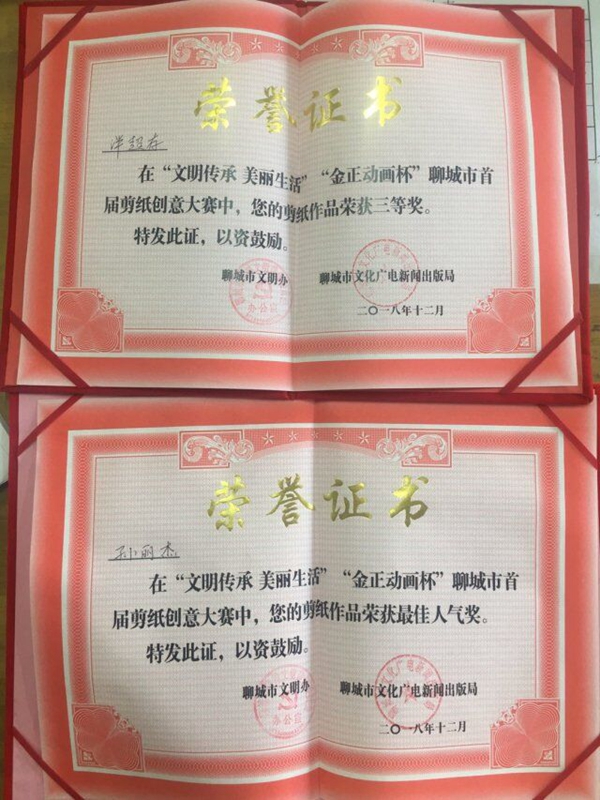 荣誉证书
在“文明传承 美丽生活”“金正动画杯”聊城市首
届剪纸创意大赛中，您的剪纸作品荣获三等奖。
特发此证，以资鼓励。
聊城市文明办 聊城市文化广电新闻出版局
二〇一八年十二月
荣誉证书
孙丽杰
在“文明传承 美丽生活”“金正动画杯”聊城市首
届剪纸创意大赛中，您的剪纸作品荣获最佳人气奖。
特发此证，以资鼓励。
聊城市文明办 聊城市文化广电新闻出版局
二〇一八年十二月